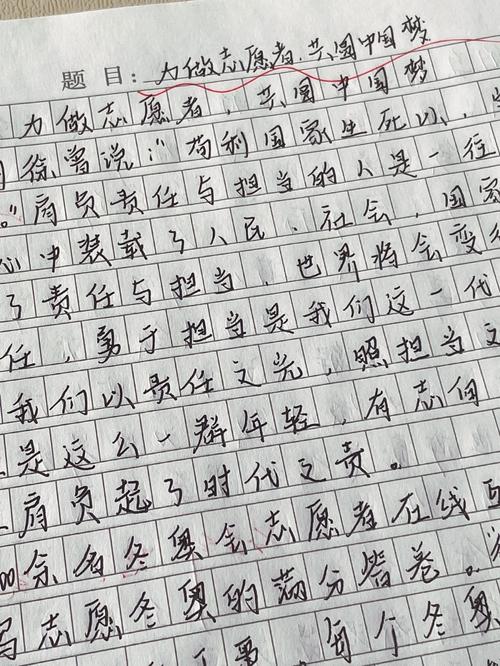 题目：力做志愿者，共圆中国梦
力做志愿者，共圆中国梦
徐曾说："苟利国家生死以，
。"肩负责任与担当的人是一往
心中装载了人民、社会、国家
了责任与担当，世界将会变
任，勇于担当是我们这一代
我们以责任之光，照担当之
是这么一群年轻，有志向
肩负起了时代之责。
00余名冬奥会志愿者在线
写志愿冬奥的满分答卷。
每个冬奥